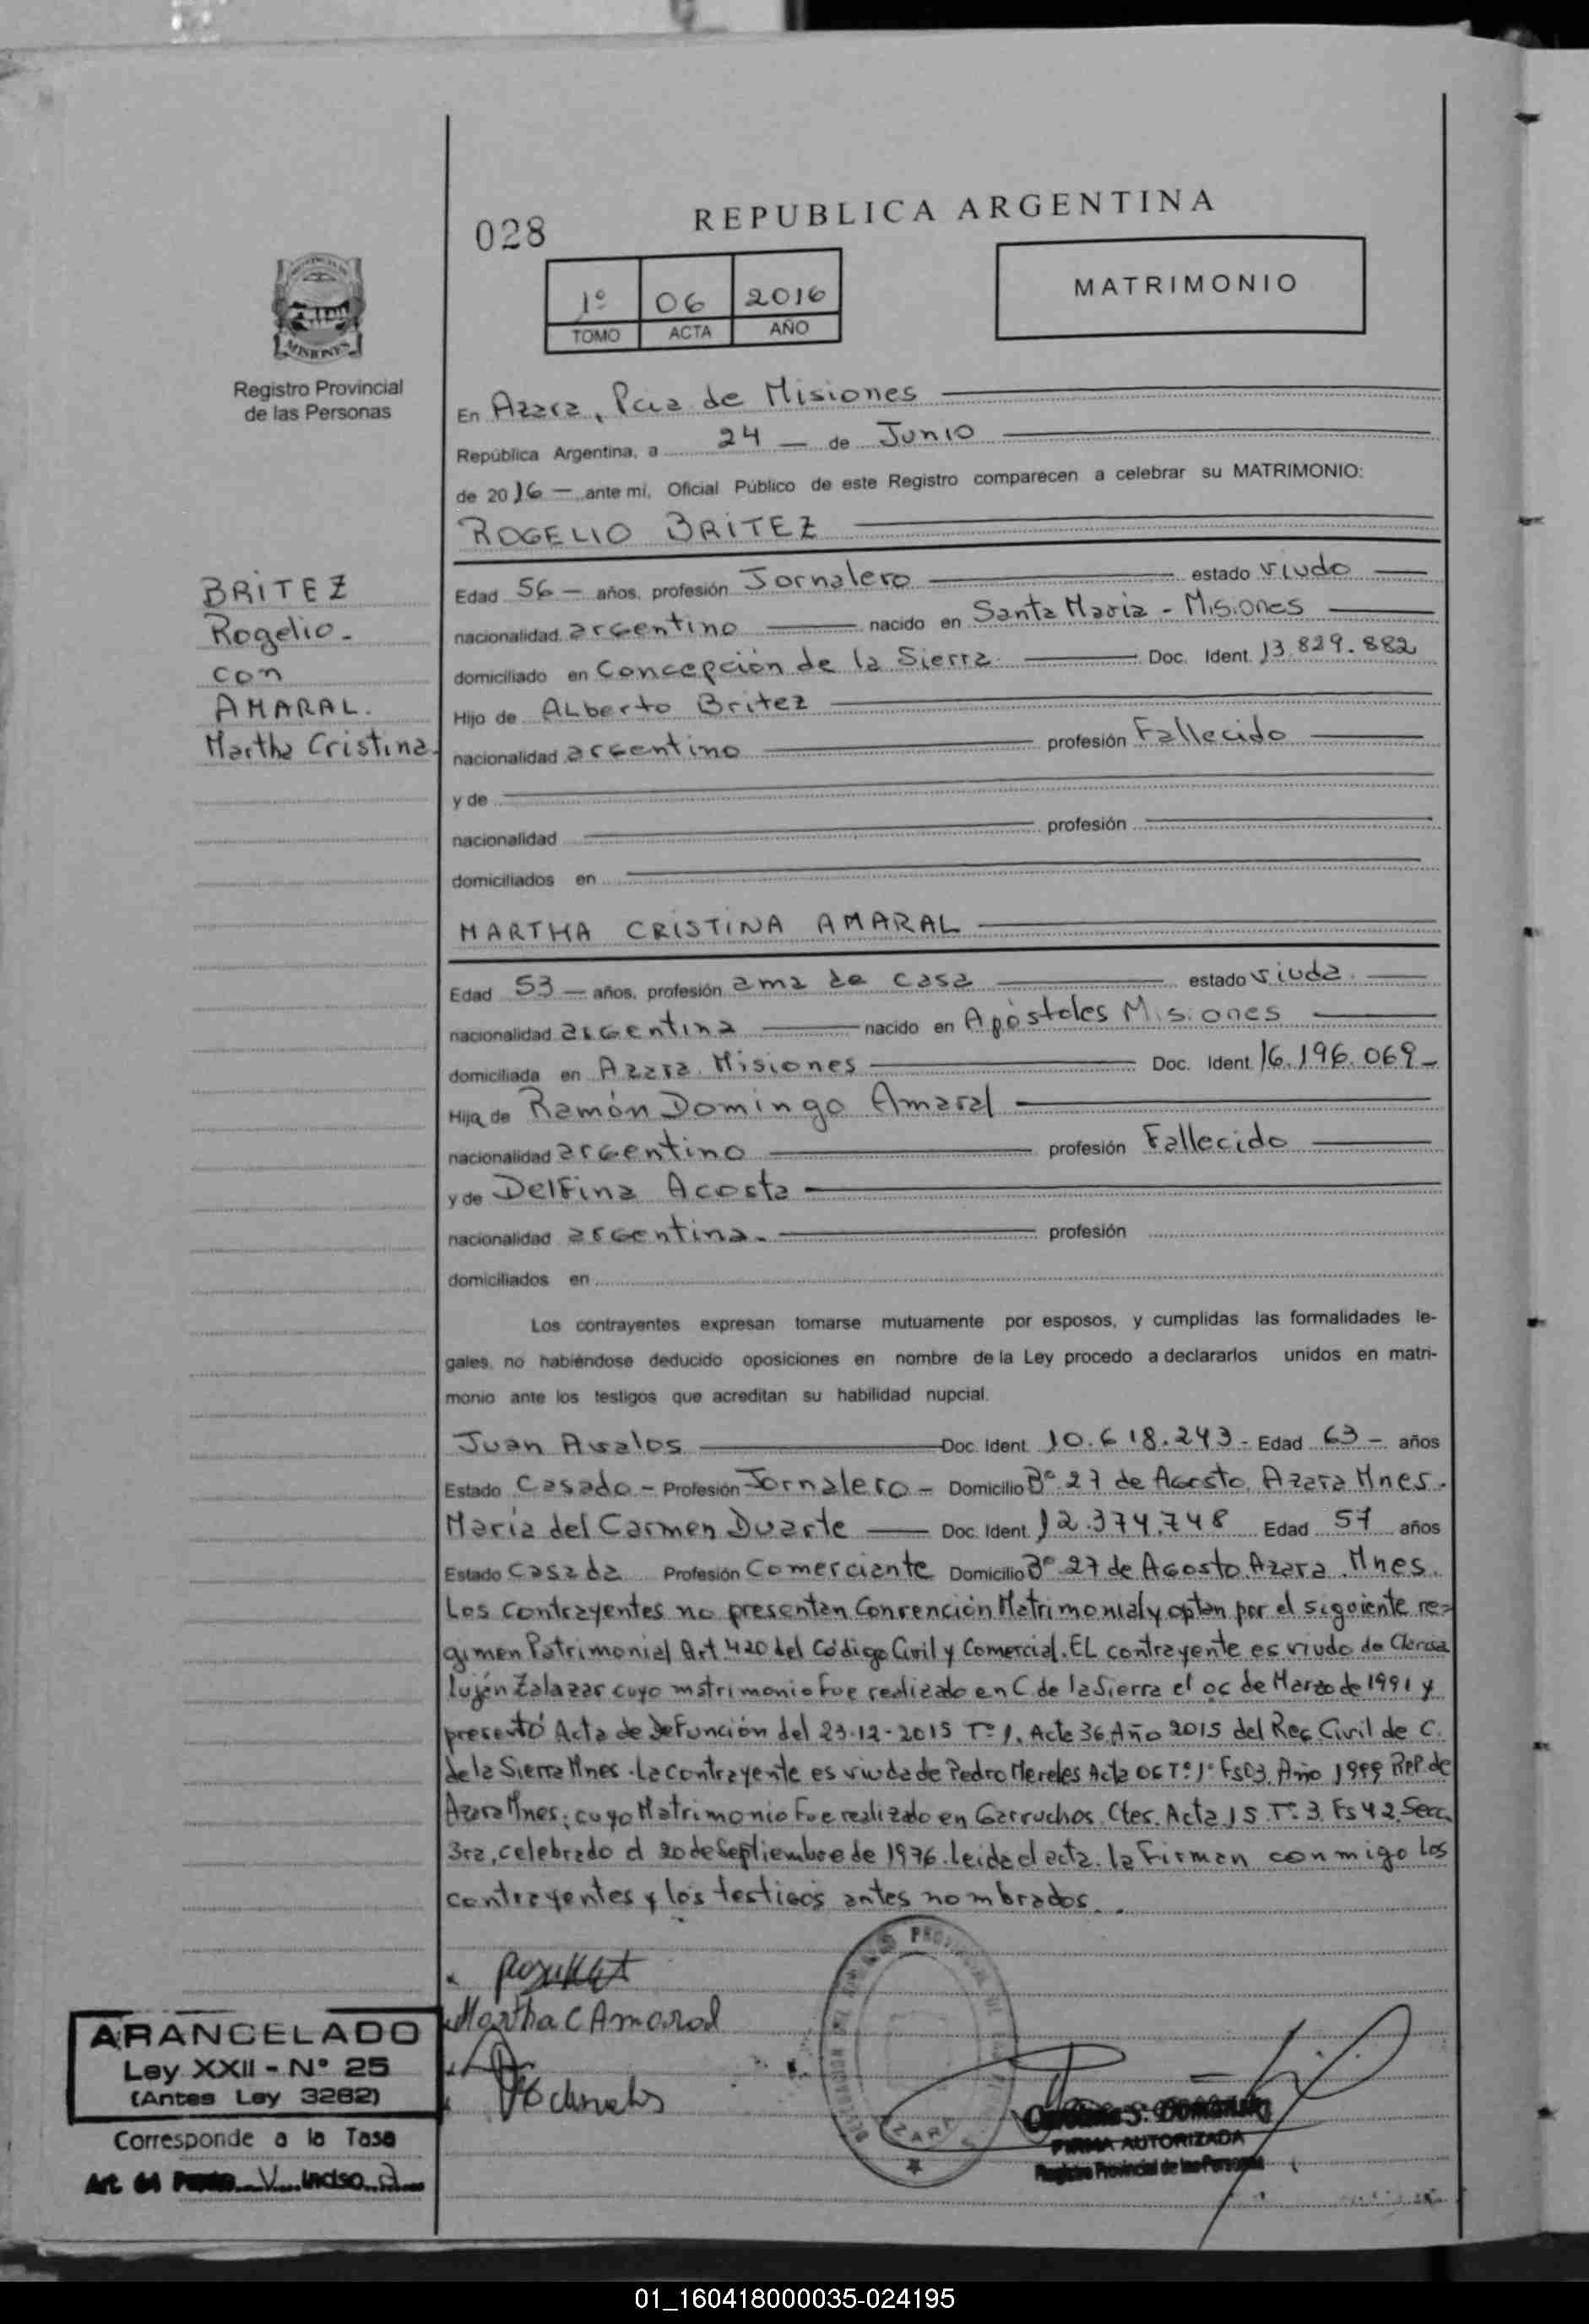 REPUBLICA ARGENTINA
028
MATRIMONIO
1º 06 2016
TOMO ACTA AÑO
MISIONES
Registro Provincial
de las Personas
En Azara, Pcia de Misiones
República Argentina, a 24 — de Junio
de 2016 — ante mi, Oficial Público de este Registro comparecen a celebrar su MATRIMONIO:
ROGELIO BRITEZ
BRITEZ
Rogelio.
con
AMARAL.
Martha Cristina.
Edad 56 — años, profesión Jornalero estado viudo
nacionalidad argentino nacido en Santa Maria - Misiones
domiciliado en Concepción de la Sierra Doc. Ident. 13.829.882
Hijo de Alberto Britez
nacionalidad argentino profesión Fallecido
y de
nacionalidad profesión
domiciliados en
MARTHA CRISTINA AMARAL
Edad 53 — años, profesión ama de casa estado viuda
nacionalidad argentina nacido en Apóstoles Misiones
domiciliada en Azara Misiones Doc. Ident. 16.196.069-
Hija de Ramón Domingo Amaral
nacionalidad argentino profesión Fallecido
y de Delfina Acosta
nacionalidad argentina. profesión
domiciliados en
Los contrayentes expresan tomarse mutuamente por esposos, y cumplidas las formalidades le-
gales, no habiéndose deducido oposiciones en nombre de la Ley procedo a declararlos unidos en matri-
monio ante los testigos que acreditan su habilidad nupcial.
Juan Avalos Doc. Ident. 10.618.243- Edad 63- años
Estado Casado - Profesión Jornalero - Domicilio Bº 27 de Agosto, Azara Mnes.
María del Carmen Duarte Doc. Ident. 12.374.748 Edad 57 años
Estado Casada Profesión Comerciante Domicilio Bº 27 de Agosto Azara. Mnes.
Los contrayentes no presentan Convención Matrimonial y optan por el siguiente re-
gimen Patrimonial Art. 420 del Código Civil y Comercial. El contrayente es viudo de
Luján Zalazar cuyo matrimonio fue realizado en C. de la Sierra el 06 de Marzo de 1991 y
presentó Acta de Defunción del 23-12-2015 Tº 1. Acta 36 Año 2015 del Reg. Civil de C.
de la Sierra Mnes. La contrayente es viuda de Pedro Mereles Acta 06 Tº 1º Fs03. Año 1999 Rep. de
Azara Mnes; cuyo Matrimonio fue realizado en Garruchos. Ctes. Acta 15. Tº. 3. Fs 42. Secc.
3ra, celebrado el 20 de Septiembre de 1976. Leida el acta. la Firman conmigo los
contrayentes y los testigos antes nombrados.
Martha C Amaral
ARANCELADO
Ley XXII - Nº 25
(Antes Ley 3262)
Corresponde a la Tasa
Art. Punto V Inciso
FIRMA AUTORIZADA
Registro Provincial de las Personas
01_160418000035-024195